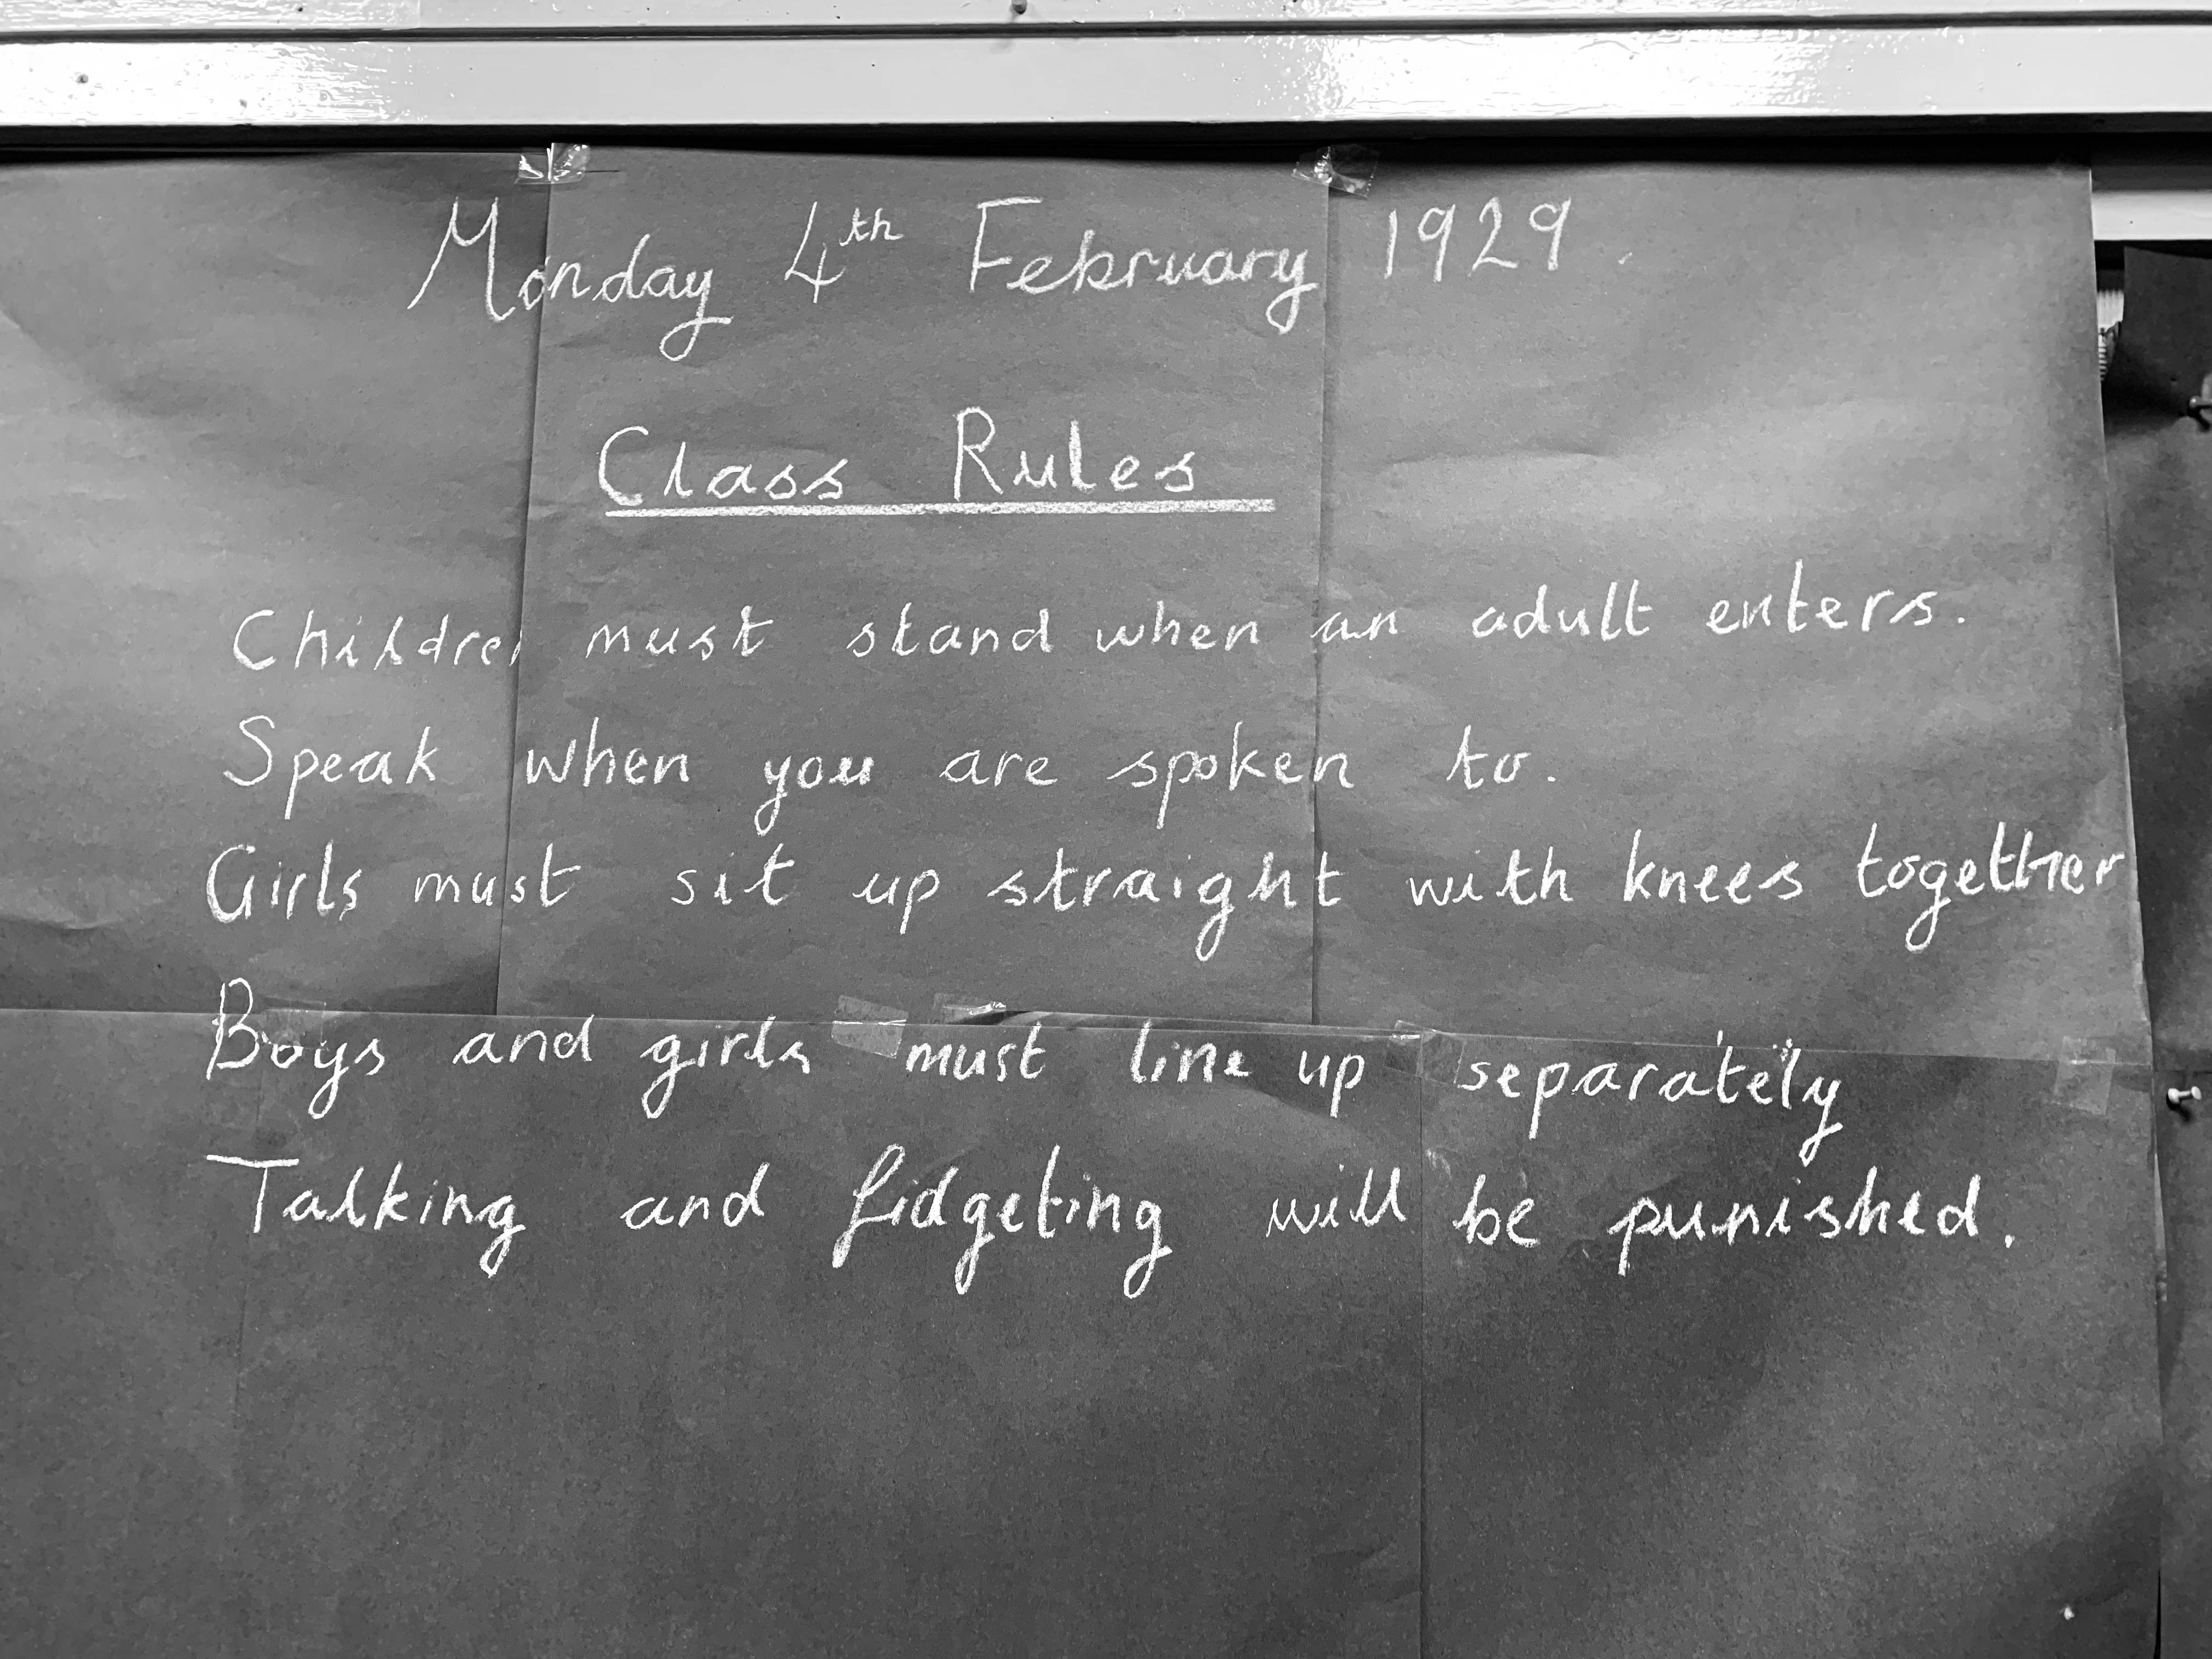 Monday 4th February 1929.
Class Rules
Children must stand when an adult enters.
Speak when you are spoken to.
Girls must sit up straight with knees together
Boys and girls must line up separately
Talking and fidgeting will be punished.